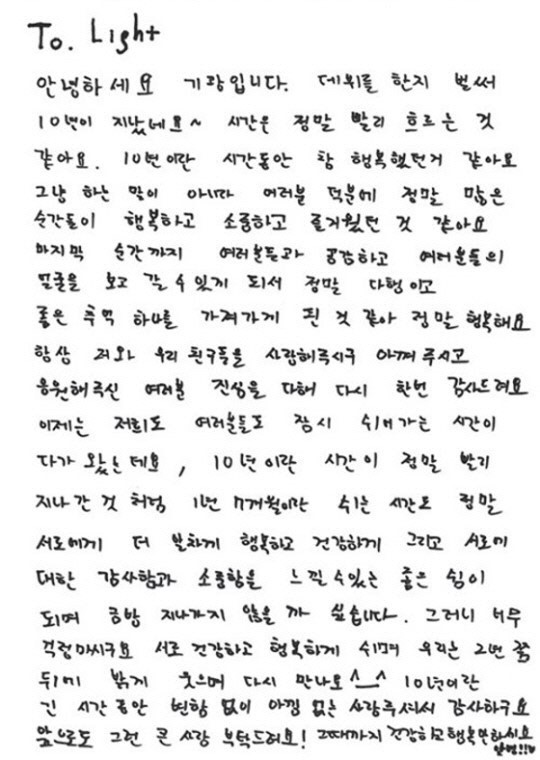 To. Light
안녕하세요 기광입니다. 데뷔를 한지 벌써
10년이 지났네요~ 시간은 정말 빨리 흐르는 것
같아요. 10년이란 시간동안 참 행복했던거 같아요
그냥 하는 말이 아니라 여러분 덕분에 정말 많은
순간들이 행복하고 소중하고 즐거웠던 것 같아요
마지막 순간까지 여러분들과 공감하고 여러분들의
얼굴을 보고 갈 수 있게 되서 정말 다행이고
좋은 추억 하나를 가져가게 된 것 같아 정말 행복해요
항상 저와 우리 친구들을 사랑해주시구 아껴 주시고
응원해주신 여러분 진심을 다해 다시 한번 감사드려요
이제는 저희도 여러분들도 잠시 쉬어가는 시간이
다가 왔는데요, 10년이란 시간이 정말 빨리
지나간 것 처럼 1년 7개월이란 쉬는 시간도 정말
서로에게 더 알차게 행복하고 건강하게 그리고 서로에
대한 감사함과 소중함을 느낄 수 있는 좋은 쉼이
되며 금방 지나가지 않을 까 싶습니다. 그러니 너무
걱정마시구요 서로 건강하고 행복하게 쉬며 우리는 2년 쫌
뒤에 밝게 웃으며 다시 만나요^__^ 10년이란
긴 시간동안 변함 없이 아낌 없는 사랑주셔서 감사하구요
앞으로도 그런 큰 사랑 부탁드려요! 그때까지 건강하고 행복만하십쇼
안녕!!♡